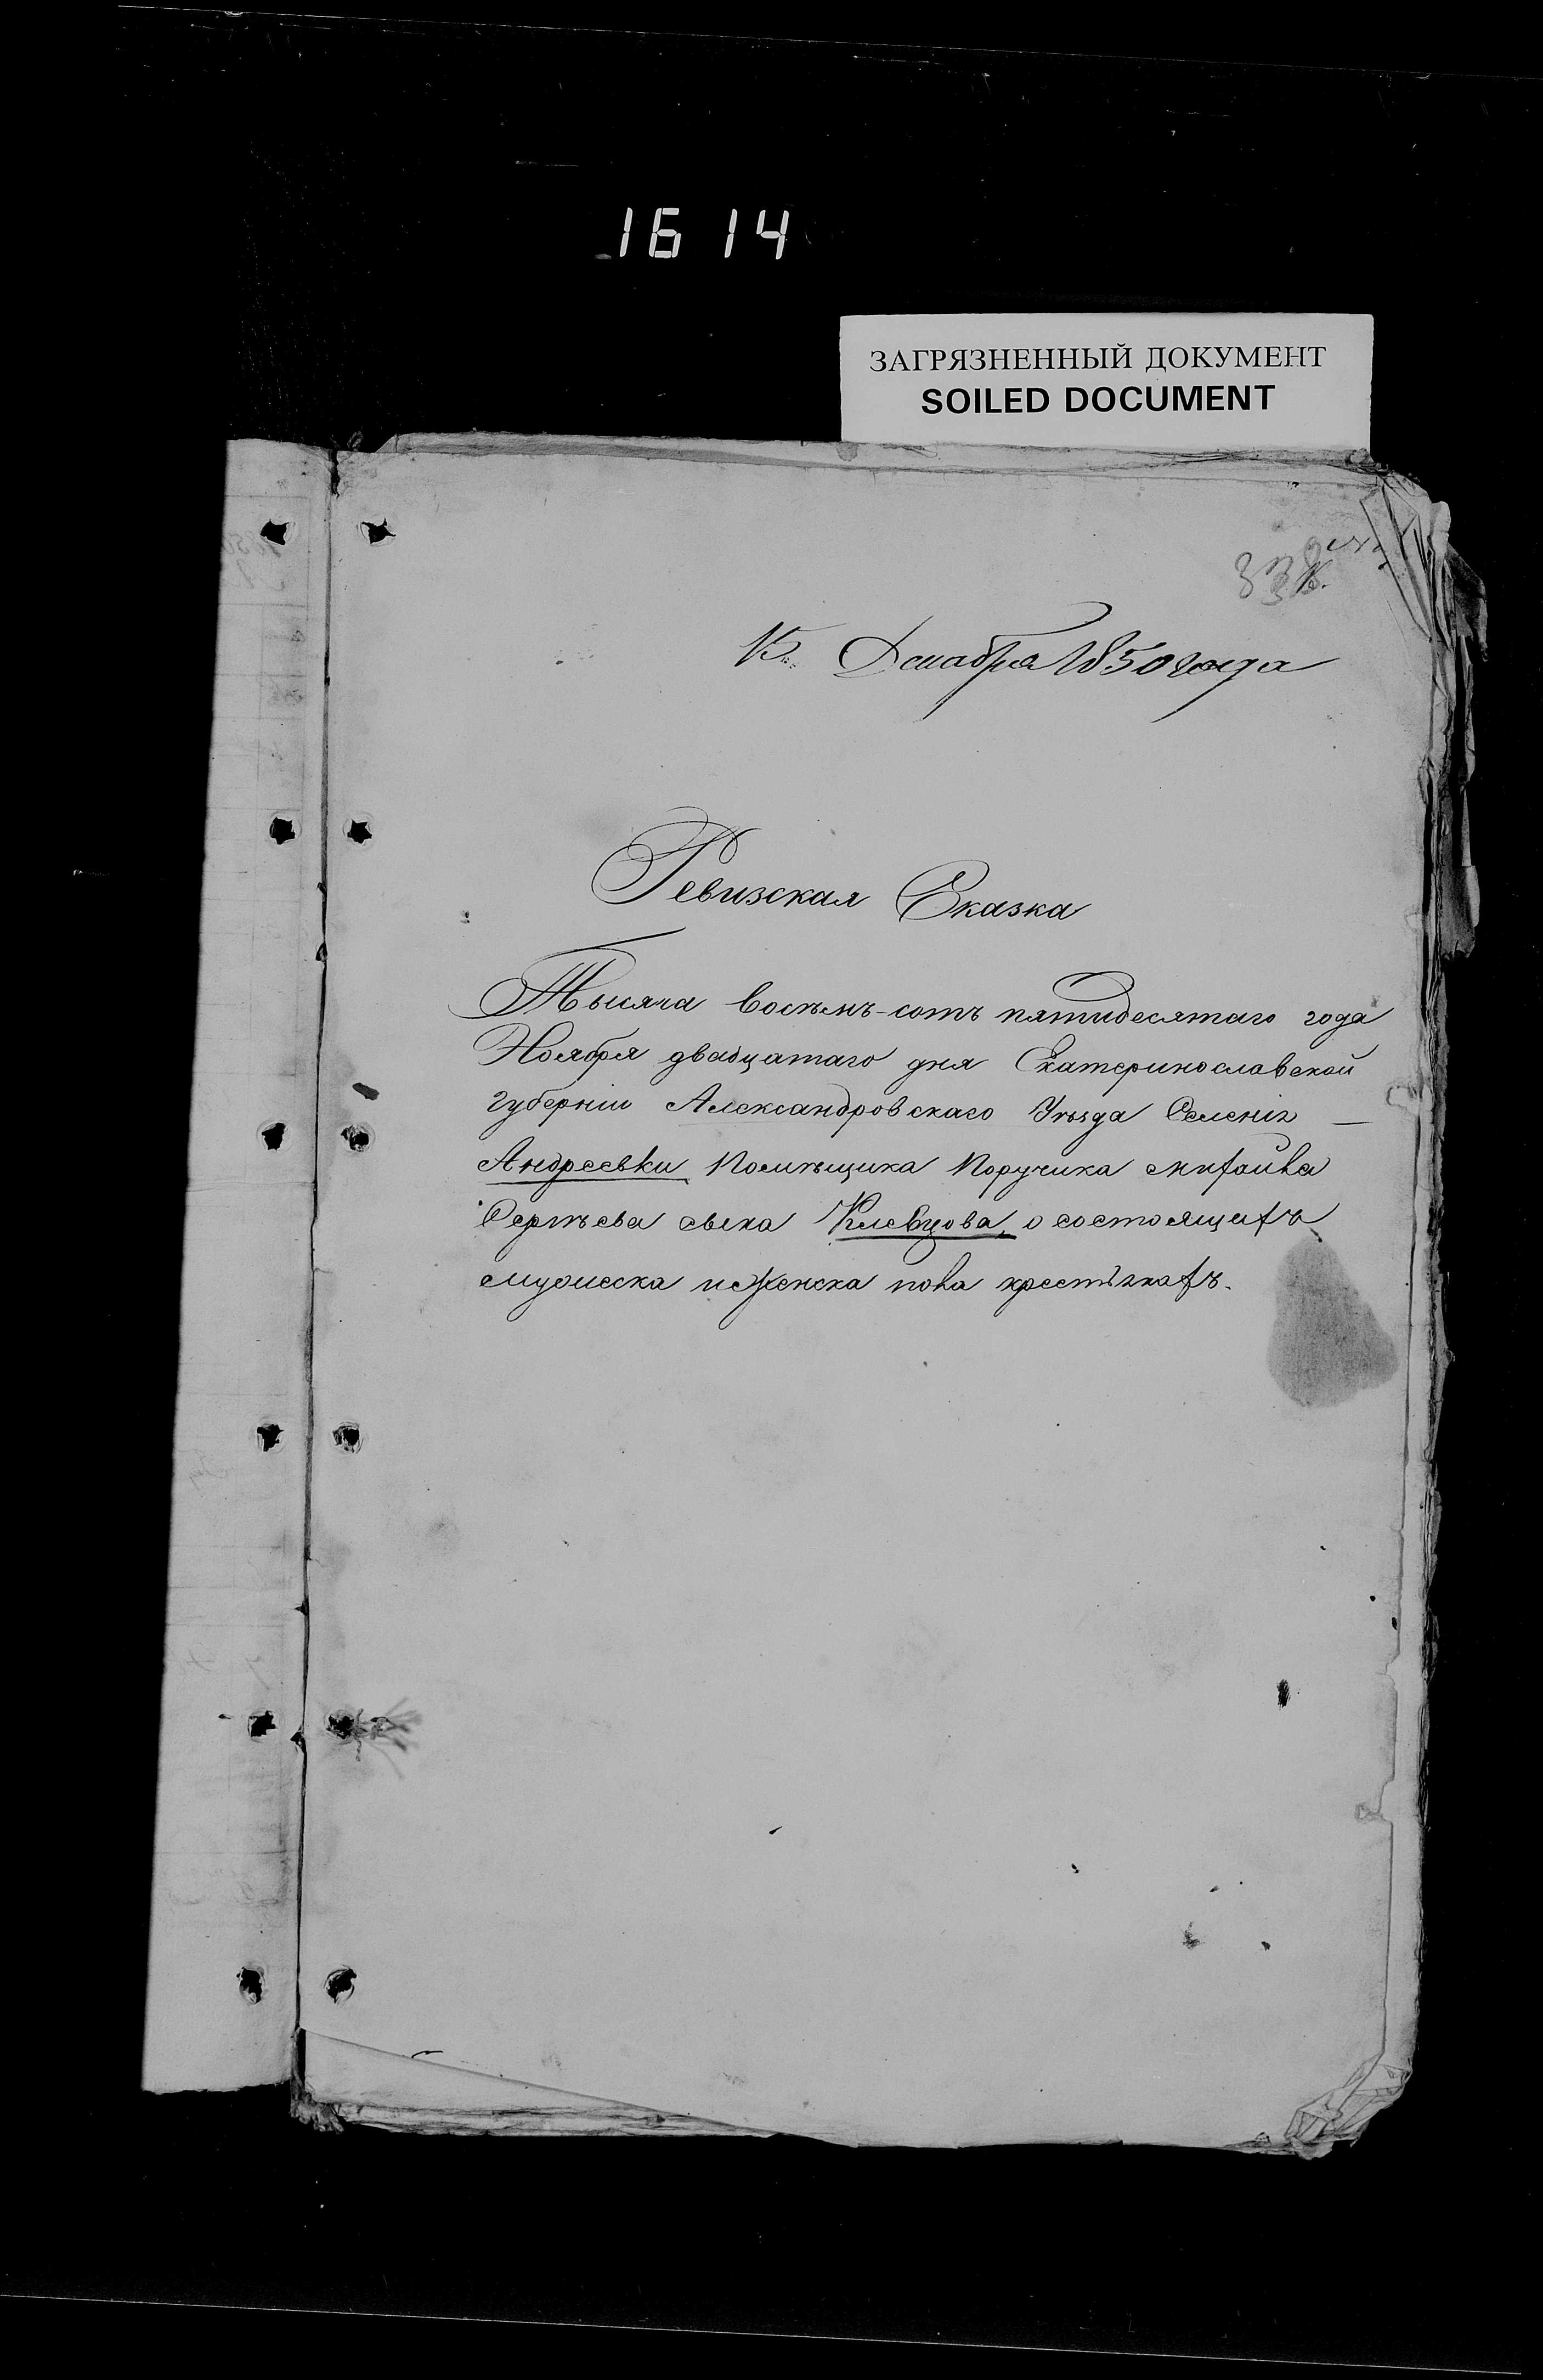 1614
ЗАГРЯЗНЕННЫЙ ДОКУМЕНТ
SOILED DOCUMENT
338
15. Декабря 1850 года
Ревизская Сказка
Тысяча восемъ-сотъ пятидесятаго года
Ноября двадцатаго дня Екатеринославской
губерніи Александровскаго Уѣзда Селенія
Андреевки Помѣщика Поручика михайла
Сергѣева сына Клевцова, о состоящихъ
мужеска и женска пола крестьянахъ.